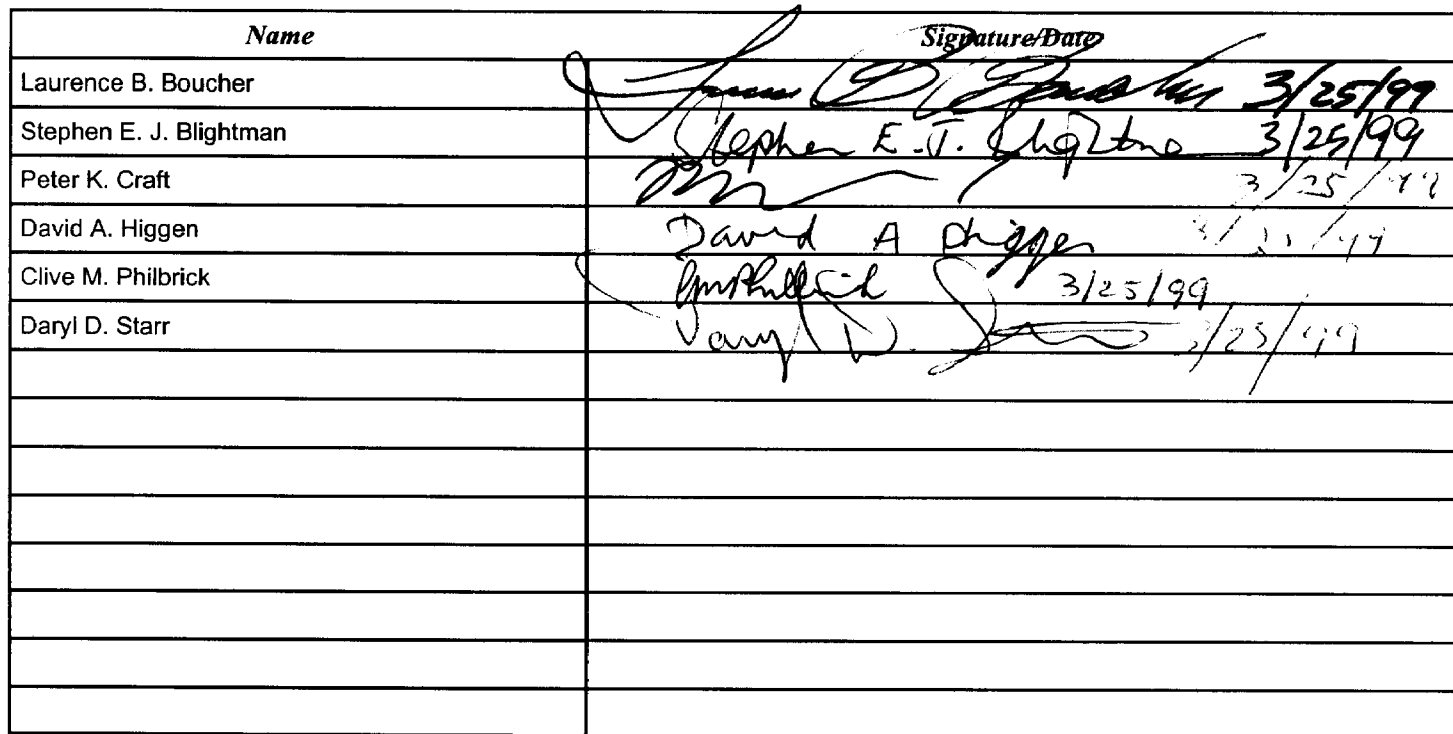 Name Signature/Date
Laurence B. Boucher 3/25/99
Stephen E. J. Blightman Stephen E. J. Blightman 3/25/99
Peter K. Craft 3/25/99
David A. Higgen David A Higgen
Clive M. Philbrick 3/25/99
Daryl D. Starr Daryl D.